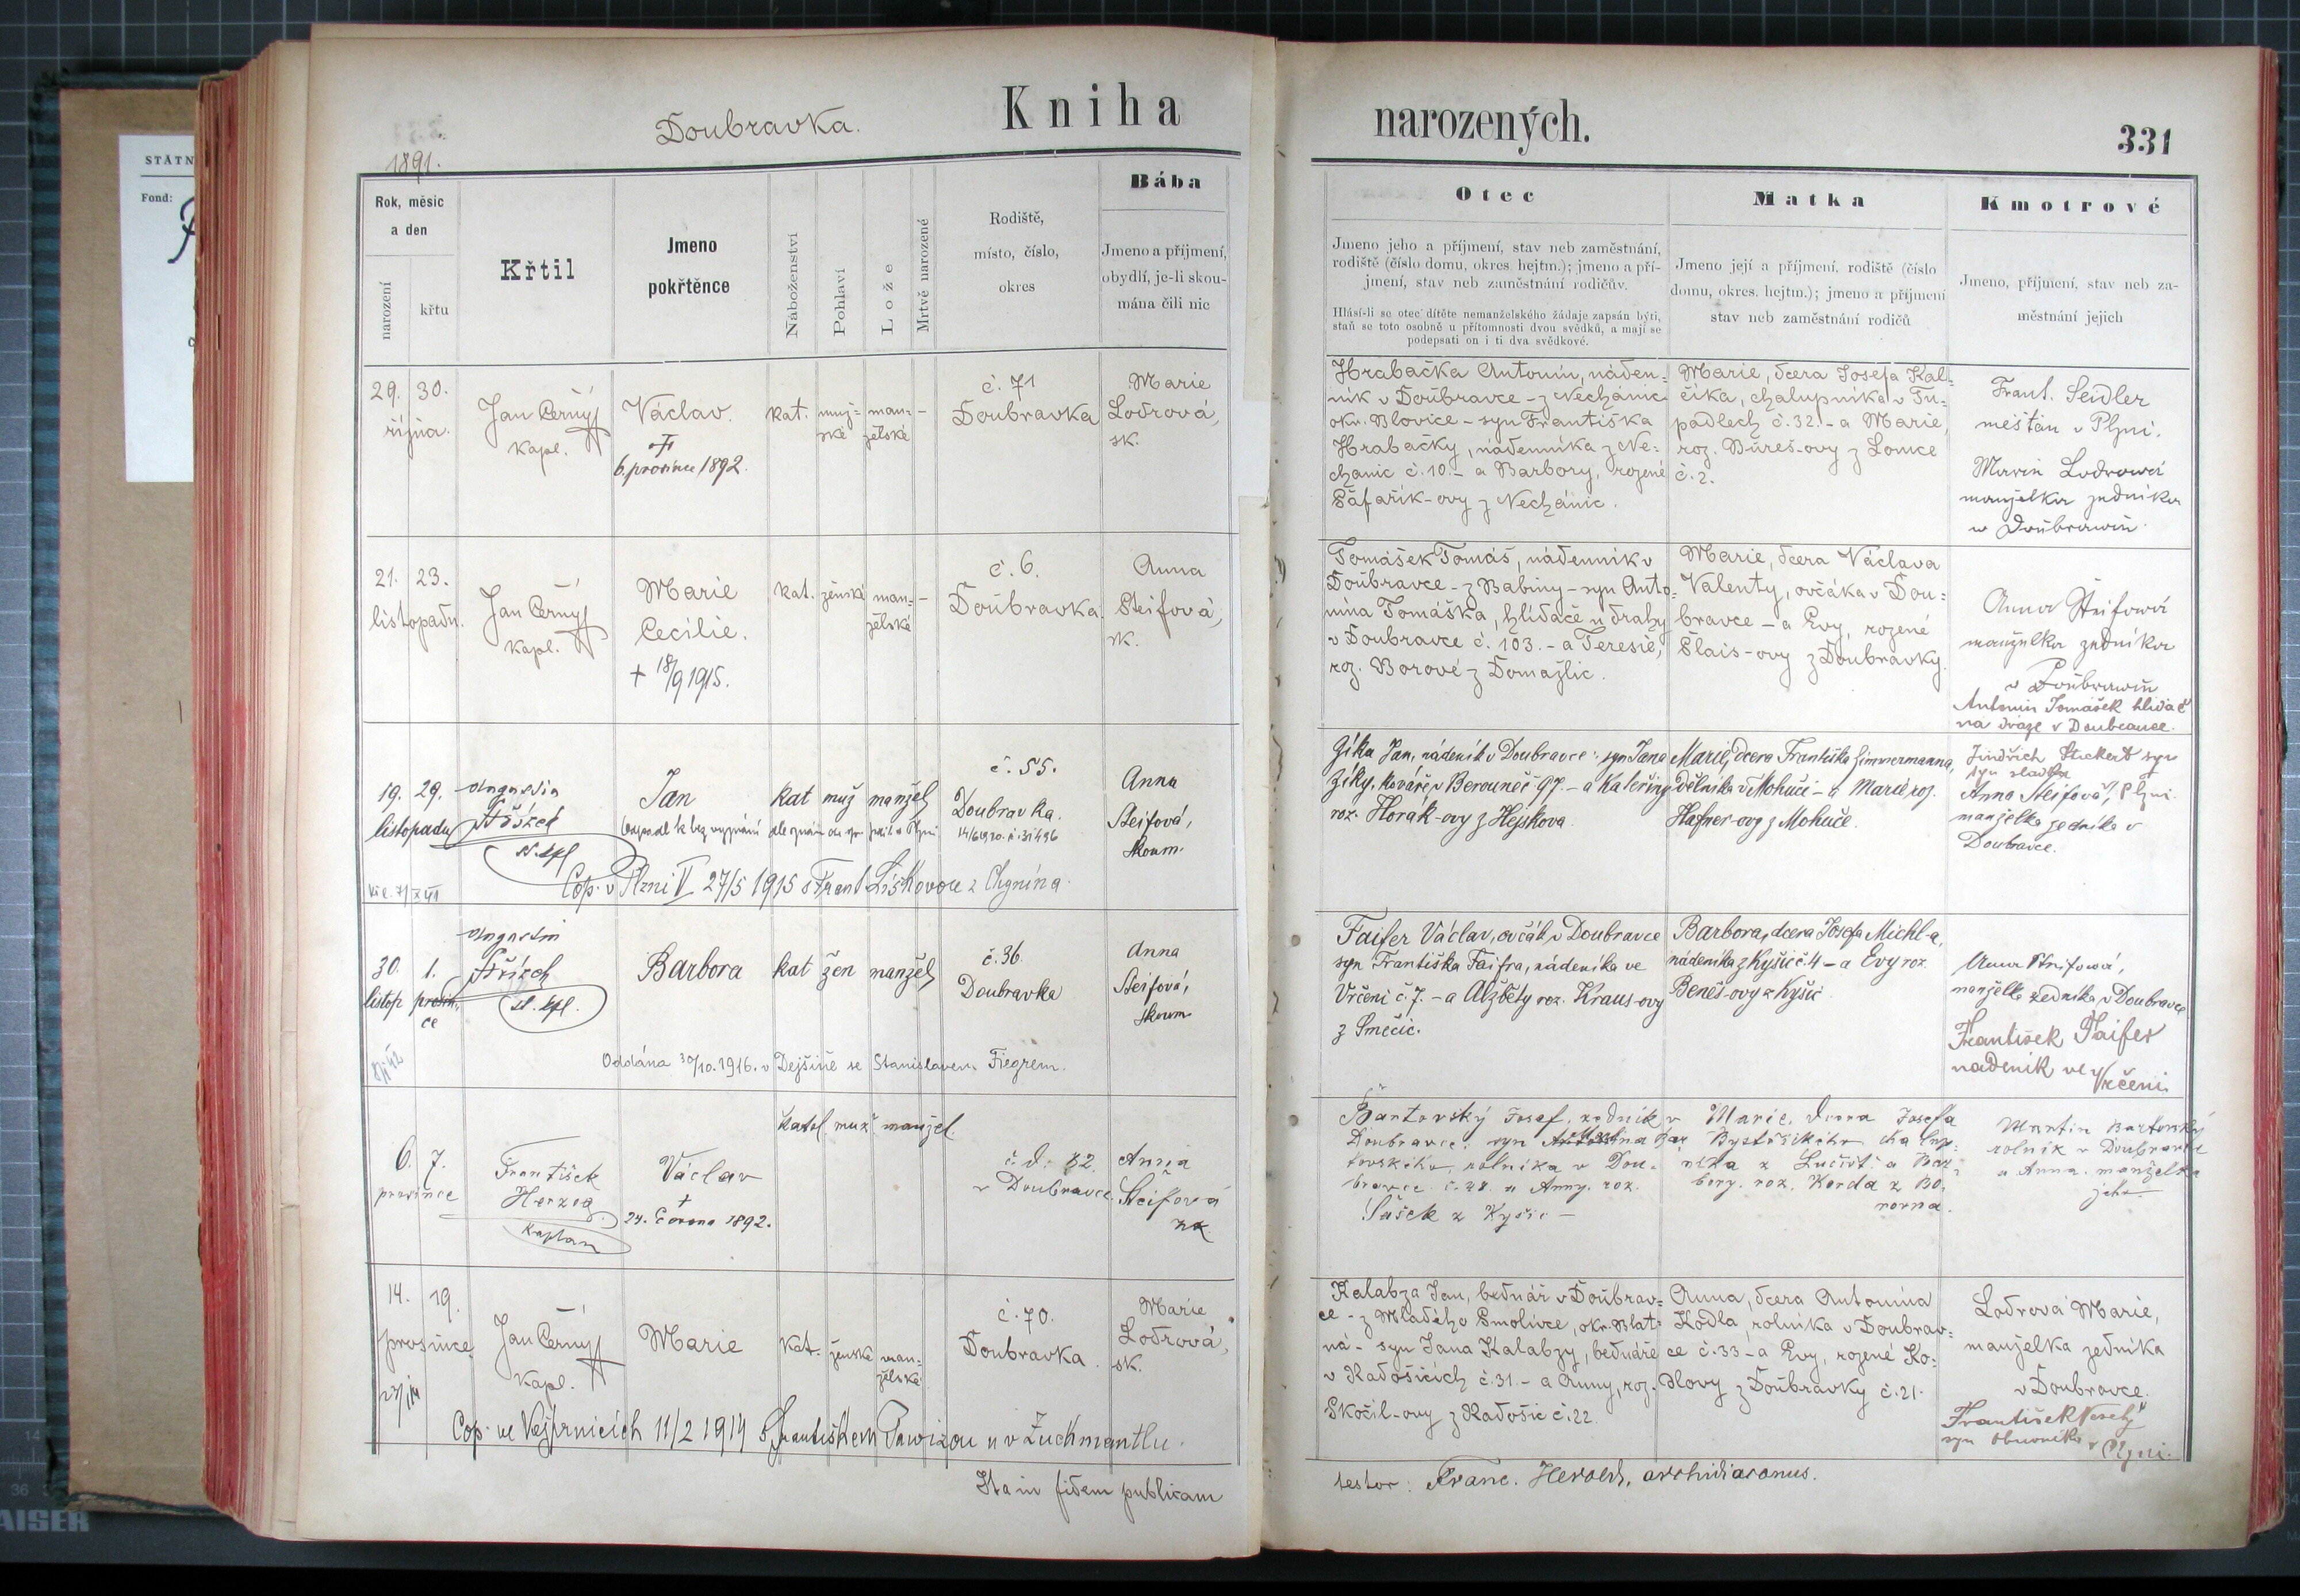 STÁTN
Fond:
Doubravka.
Kniha
1891.
Rok, měsíc
a den
narození
křtu
Křtil
Jmeno
pokřtěnce
Náboženství
Pohlaví
Lože
Mrtvě narozené
Rodiště,
místo, číslo,
okres
Bába
Jmeno a příjmení,
obydlí, je-li skou-
mána čili nic
29. 30.
října.
Jan Černý
kapl.
Václav.
6. prosince 1892.
kat.
muž=
ské
man=
želské
–
č. 71
Doubravka
Marie
Lodrová,
sk.
21. 23.
listopadu.
Jan Černý
kapl.
Marie
Cecilie.
+ 18/9 1915.
kat.
ženské
man=
želské
–
č. 6.
Doubravka.
Anna
Steifová,
sk.
19. 29.
listopadu
Augustin
st. kpl
Jan
kat muž manžel
č. 55.
Doubravka.
Anna
Steifová,
skoum.
Cop. v Plzni V 27/5 1915 s Frant. Liškovou z Chynína.
30. 1.
listop prosin-
ce
Augustin
st. kpl.
Barbora
kat žen manžel
č. 36.
Doubravka
Anna
Steifová,
skoum
Oddána 30/10. 1916. v Dejšině se Stanislavem Fiegrem.
6. 7.
prosince
František
Herzog
Kaplan
Václav
+
24. června 1892.
katol. muž manžel.
č. d. 82.
v Doubravce.
Anna
Steifová
zk
14. 19.
prosince.
Jan Černý
kapl.
Marie
kat.
ženské
man=
želské
č. 70.
Doubravka.
Marie
Lodrová,
sk.
Cop. ve Vejprnicích 11/2 1914 s Františkem Tawizou u v Zuchmantlu.
Ita in fidem publicam
narozených.
331
Otec
Jmeno jeho a příjmení, stav neb zaměstnání,
rodiště (číslo domu, okres. hejtm.); jmeno a pří-
jmení, stav neb zaměstnání rodičův.
Hlásí-li se otec dítěte nemanželského žádaje zapsán býti,
staň se toto osobně u přítomnosti dvou svědků, a mají se
podepsati on i ti dva svědkové.
Matka
Jmeno její a příjmení, rodiště (číslo
domu, okres. hejtm.); jmeno a příjmení
stav neb zaměstnání rodičů
Kmotrové
Jmeno, příjmení, stav neb za-
městnání jejich
Hrabačka Antonín, náden=
ník v Doubravce - z Nechanic
okr. Blovice - syn Františka
Hrabačky, nádenníka z Ne=
chanic č. 10. - a Barbory, rozené
Šafařík-ovy z Nechánic.
Marie, dcera Josefa Kal=
číka, chalupníka v Tu=
padlech č. 32. - a Marie,
roz. Bureš-ovy z Lomce
č. 2.
Frant. Seidler
měšťan v Plzni.
Marie Lodrowá
manželka zedníka
w Doubrawců
Tomášek Tomáš, nádenník v
Doubravce - z Babiny - syn Anto=
nína Tomáška, hlídače u dráhy
v Doubravce č. 103. - a Teresie,
roz. Borové z Domažlic.
Marie, dcera Václava
Valenty, ovčáka v Dou=
bravce - a Evy, rozené
Šlais-ovy z Doubravky.
Anna Steifowá
manželka zedníka
v Doubrawců
Antonín Tomášek hlídač
na dráze v Doubravce.
Zíka Jan, nádeník v Doubravce: syn Jana
Zíky, kováře v Berouně č 97. - a Kateřiny
roz. Horák-ovy z Hejskova.
Marie, dcera Františka Zimmermanna,
dělníka v Mohuči - a Marie roz.
Hafner-ovy z Mohuče.
Jindřich Stickert syn
syn sládka
v Plzni.
Anna Steifová,
manželka zedníka v
Doubravce.
Faifer Václav, ovčák v Doubravce
syn Františka Faifra, nádeníka ve
Vrčeni č. 7. - a Alžběty roz. Kraus-ovy
z Směčic.
Barbora, dcera Josefa Michl-a,
nádeníka z Kyšic č. 4 - a Evy roz.
Beneš-ovy z Kyšic
Anna Steifowá,
manželka zedníka v Doubravce
František Faifer
nádeník ve Vrčeni
Bartovský Josef, zedník v
Doubravce, syn Bar
tovského, rolníka v Dou-
bravce č. 28. a Anny, roz.
Sušek z Kyšic –
Marie, dcera Josefa
Bystřického, chalup-
níka z Lučiště a Bar-
bory, roz. Korda z Bo
rovna.
Martin Bartovský
rolník v Doubravce
a Anna manželka
jeho
Kalabza Jan, bednář v Doubrav=
ce - z Mladého Smolivce, okr. Blat=
ná - syn Jana Kalabzy, bednáře
v Radošicích č. 31. - a Anny, roz.
Skočil-ovy z Radošic č. 22.
Anna, dcera Antonína
Kodla, rolníka v Doubrav=
ce č. 33 - a Evy, rozené Ko=
dlovy z Doubravky č. 21.
Lodrová Marie,
manželka zedníka
v Doubravce.
František Veselý
syn obuvníka v Plzni.
testor: Franc. Herold, archidiaconus.